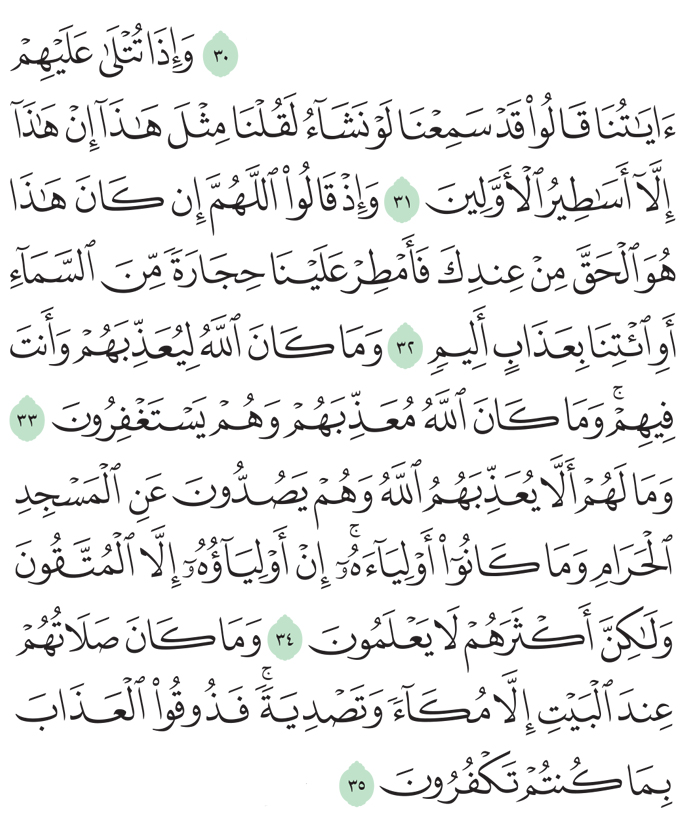 ٣٠ وَإِذَا تُتۡلَىٰ عَلَيۡهِمۡ
ءَايَٰتُنَا قَالُواْ قَدۡ سَمِعۡنَا لَوۡ نَشَآءُ لَقُلۡنَا مِثۡلَ هَٰذَآ إِنۡ هَٰذَآ
إِلَّآ أَسَٰطِيرُ ٱلۡأَوَّلِينَ ٣١ وَإِذۡ قَالُواْ ٱللَّهُمَّ إِن كَانَ هَٰذَا
هُوَ ٱلۡحَقَّ مِنۡ عِندِكَ فَأَمۡطِرۡ عَلَيۡنَا حِجَارَةٗ مِّنَ ٱلسَّمَآءِ
أَوِ ٱئۡتِنَا بِعَذَابٍ أَلِيمٖ ٣٢ وَمَا كَانَ ٱللَّهُ لِيُعَذِّبَهُمۡ وَأَنتَ
فِيهِمۡۚ وَمَا كَانَ ٱللَّهُ مُعَذِّبَهُمۡ وَهُمۡ يَسۡتَغۡفِرُونَ ٣٣
وَمَا لَهُمۡ أَلَّا يُعَذِّبَهُمُ ٱللَّهُ وَهُمۡ يَصُدُّونَ عَنِ ٱلۡمَسۡجِدِ
ٱلۡحَرَامِ وَمَا كَانُوٓاْ أَوۡلِيَآءَهُۥٓۚ إِنۡ أَوۡلِيَآؤُهُۥٓ إِلَّا ٱلۡمُتَّقُونَ
وَلَٰكِنَّ أَكۡثَرَهُمۡ لَا يَعۡلَمُونَ ٣٤ وَمَا كَانَ صَلَاتُهُمۡ
عِندَ ٱلۡبَيۡتِ إِلَّا مُكَآءٗ وَتَصۡدِيَةٗۚ فَذُوقُواْ ٱلۡعَذَابَ
بِمَا كُنتُمۡ تَكۡفُرُونَ ٣٥